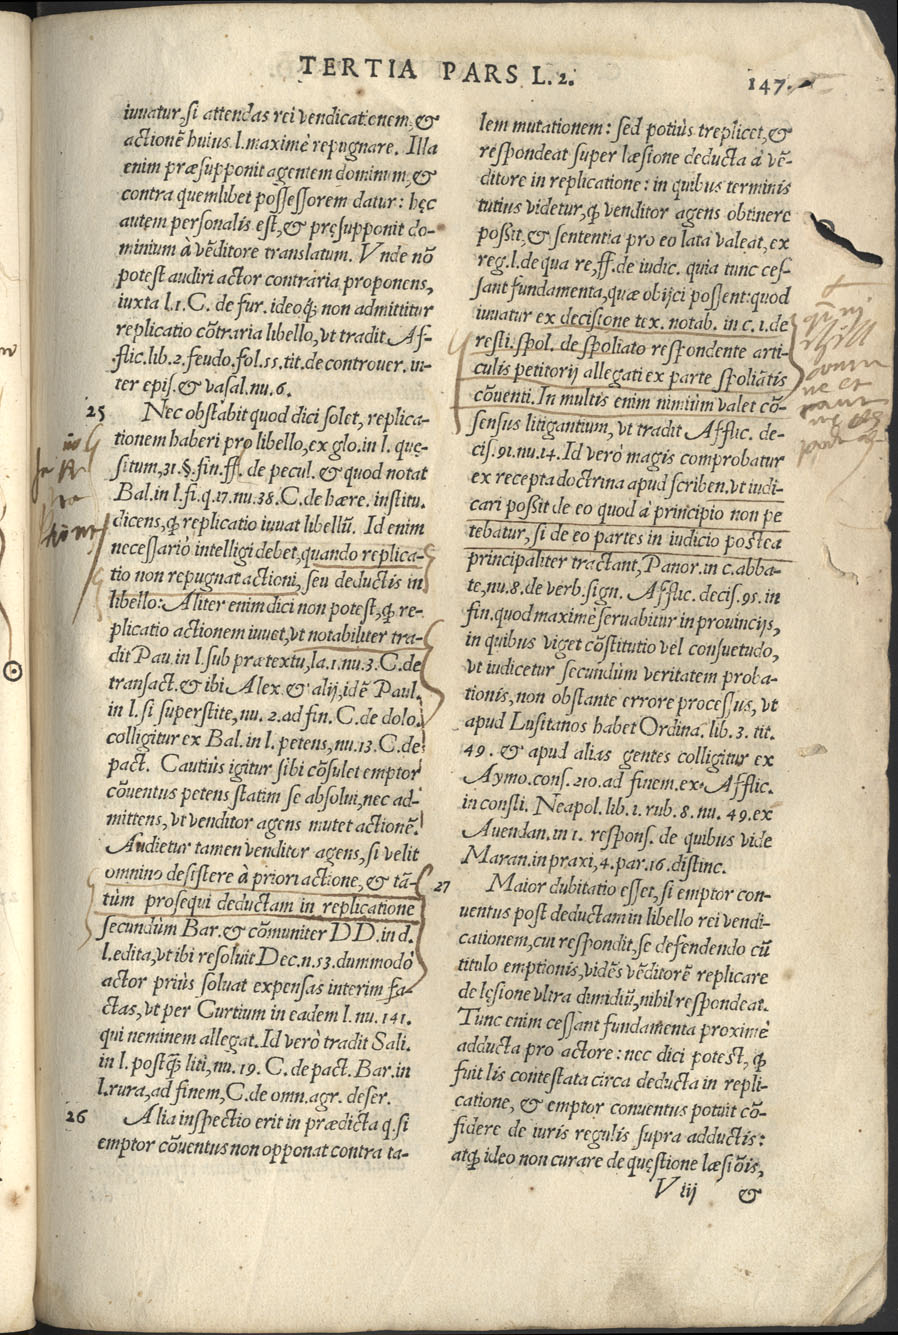 TERTIA PARS L. 2.
147.
iuuatur, si attendas rei vendicationem, &
actionẽ huius l. maximè repugnare. Illa
enim præsupponit agentem dominum, &
contra quemlibet possessorem datur: hęc
autem personalis est, & pręsupponit do-
minium à vẽditore translatum. Vnde nõ
potest audiri actor contraria proponens,
iuxta l. 1. C. de fur. ideoq́; non admittitur
replicatio cõtraria libello, vt tradit Af-
flic. lib. 2. feudo. fol. 55. tit. de controuer. in-
ter epis. & vasal. nu. 6.
25
Nec obstabit quod dici solet, replica-
tionem haberi pro libello, ex glo. in l. quę-
situm, 31. §. fin. ff. de pecul. & quod notat
Bal. in l. fi. q. 17. nu. 38. C. de hære. institu.
dicens, q̃ replicatio iuuat libellũ. Id enim
necessariò intelligi debet, quando replica-
tio non repugnat actioni, seu deductis in
libello: Aliter enim dici non potest, q̃ re-
plicatio actionem iuuet, vt notabiliter tra-
dit Pau. in l. sub prætextu, la. 1. nu. 3. C. de
transact. & ibi Alex. & alij, idẽ Paul.
in l. si superstite, nu. 2. ad fin. C. de dolo.
colligitur ex Bal. in l. petens, nu. 13. C. de
pact. Cautiùs igitur sibi cõsulet emptor
cõuentus petens statim se absolui, nec ad-
mittens, vt venditor agens mutet actionẽ.
Audietur tamen venditor agens, si velit
omnino desistere à priori actione, & tã-
tùm prosequi deductam in replicatione
secundùm Bar. & cõmuniter DD. in d.
l. edita, vt ibi resoluit Dec. n. 53. dummodò
actor priùs soluat expensas interim fa-
ctas, vt per Curtium in eadem l. nu. 141.
qui neminem allegat. Id verò tradit Sali.
in l. postq̃ liti, nu. 19. C. de pact. Bar. in
l. rura, ad finem, C. de omn. agr. deser.
26
Alia inspectio erit in prædicta q. si
emptor cõuentus non opponat contra ta-
lem mutationem: sed potiùs treplicet, &
respondeat super læsione deducta à vẽ-
ditore in replicatione: in quibus terminis
tutius videtur, q̃ venditor agens obtinere
possit, & sententia pro eo lata valeat, ex
reg. l. de qua re, ff. de iudic. quia tunc ces-
sant fundamenta, quæ obijci possent: quod
iuuatur ex decisione tex. notab. in c. 1. de
resti. spol. de spoliato respondente arti-
culis petitorij allegati ex parte spoliãtis
cõuenti. In multis enim nimiùm valet cõ-
sensus litigantium, vt tradit Afflic. de-
cis. 91. nu. 14. Id verò magis comprobatur
ex recepta doctrina apud scriben. vt iudi-
cari possit de eo quod à principio non pe
tebatur, si de eo partes in iudicio postea
principaliter tractant, Panor. in c. abba-
te, nu. 8. de verb. sign. Afflic. decis. 95. in
fin. quod maximè seruabitur in prouincijs,
in quibus viget cõstitutio vel consuetudo,
vt iudicetur secundùm veritatem proba-
tionis, non obstante errore processus, vt
apud Lusitanos habet Ordina. lib. 3. tit.
49. & apud alias gentes colligitur ex
Aymo. cons. 210. ad finem. ex Afflic.
in consti. Neapol. lib. 1. rub. 8. nu. 49. ex
Auendan. in 1. respons. de quibus vide
Maran. in praxi, 4. par. 16. distinc.
27
Maior dubitatio esset, si emptor con-
uentus post deductam in libello rei vendi-
cationem, cui respondit, se defendendo cũ
titulo emptionis, vidẽs vẽditorẽ replicare
de lęsione vltra dimidiũ, nihil respondeat.
Tunc enim cessant fundamenta proximè
adducta pro actore: nec dici potest, q̃
fuit lis contestata circa deducta in repli-
catione, & emptor conuentus potuit cõ-
fidere de iuris regulis supra adductis:
atq́; ideo non curare de quęstione læsiõis,
V iij
&